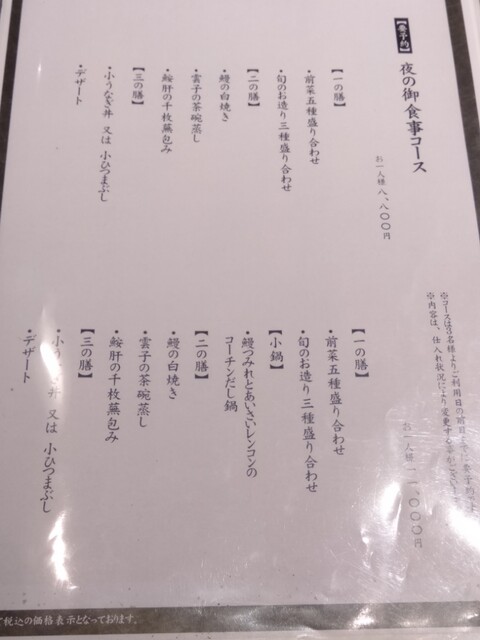 【要予約】 夜の御食事コース
※コースは3名様よりご利用日の前日までに要予約です
※内容は、仕入れ状況により変更する事がござい
お一人様 八、八〇〇円
【一の膳】
・前菜五種盛り合わせ
・旬のお造り三種盛り合わせ
【二の膳】
・鰻の白焼き
・雲子の茶碗蒸し
・鮟肝の千枚蕪包み
【三の膳】
・小うなぎ丼 又は 小ひつまぶし
・デザート
お一人様 一一、〇〇〇円
【一の膳】
・前菜五種盛り合わせ
・旬のお造り三種盛り合わせ
【小鍋】
・鰻つみれとあいさいレンコンの
コーチンだし鍋
【二の膳】
・鰻の白焼き
・雲子の茶碗蒸し
・鮟肝の千枚蕪包み
【三の膳】
・小う 丼 又は 小ひつまぶし
・デザート
て税込の価格表示となっております。